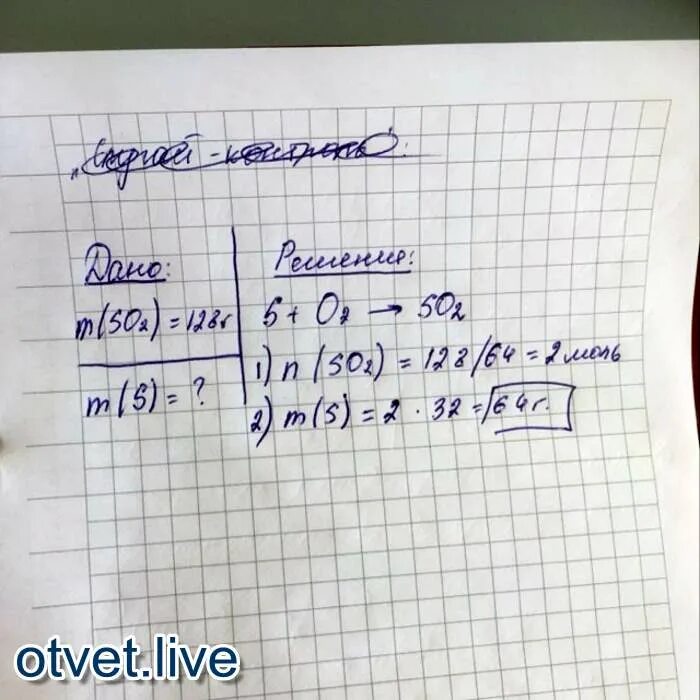 Дано:
m(SO₂) = 128г
m(S) = ?
Решение:
S + O₂ → SO₂
1) n(SO₂) = 128/64 = 2 моль
2) m(S) = 2 · 32 = 64 г.
otvet.live